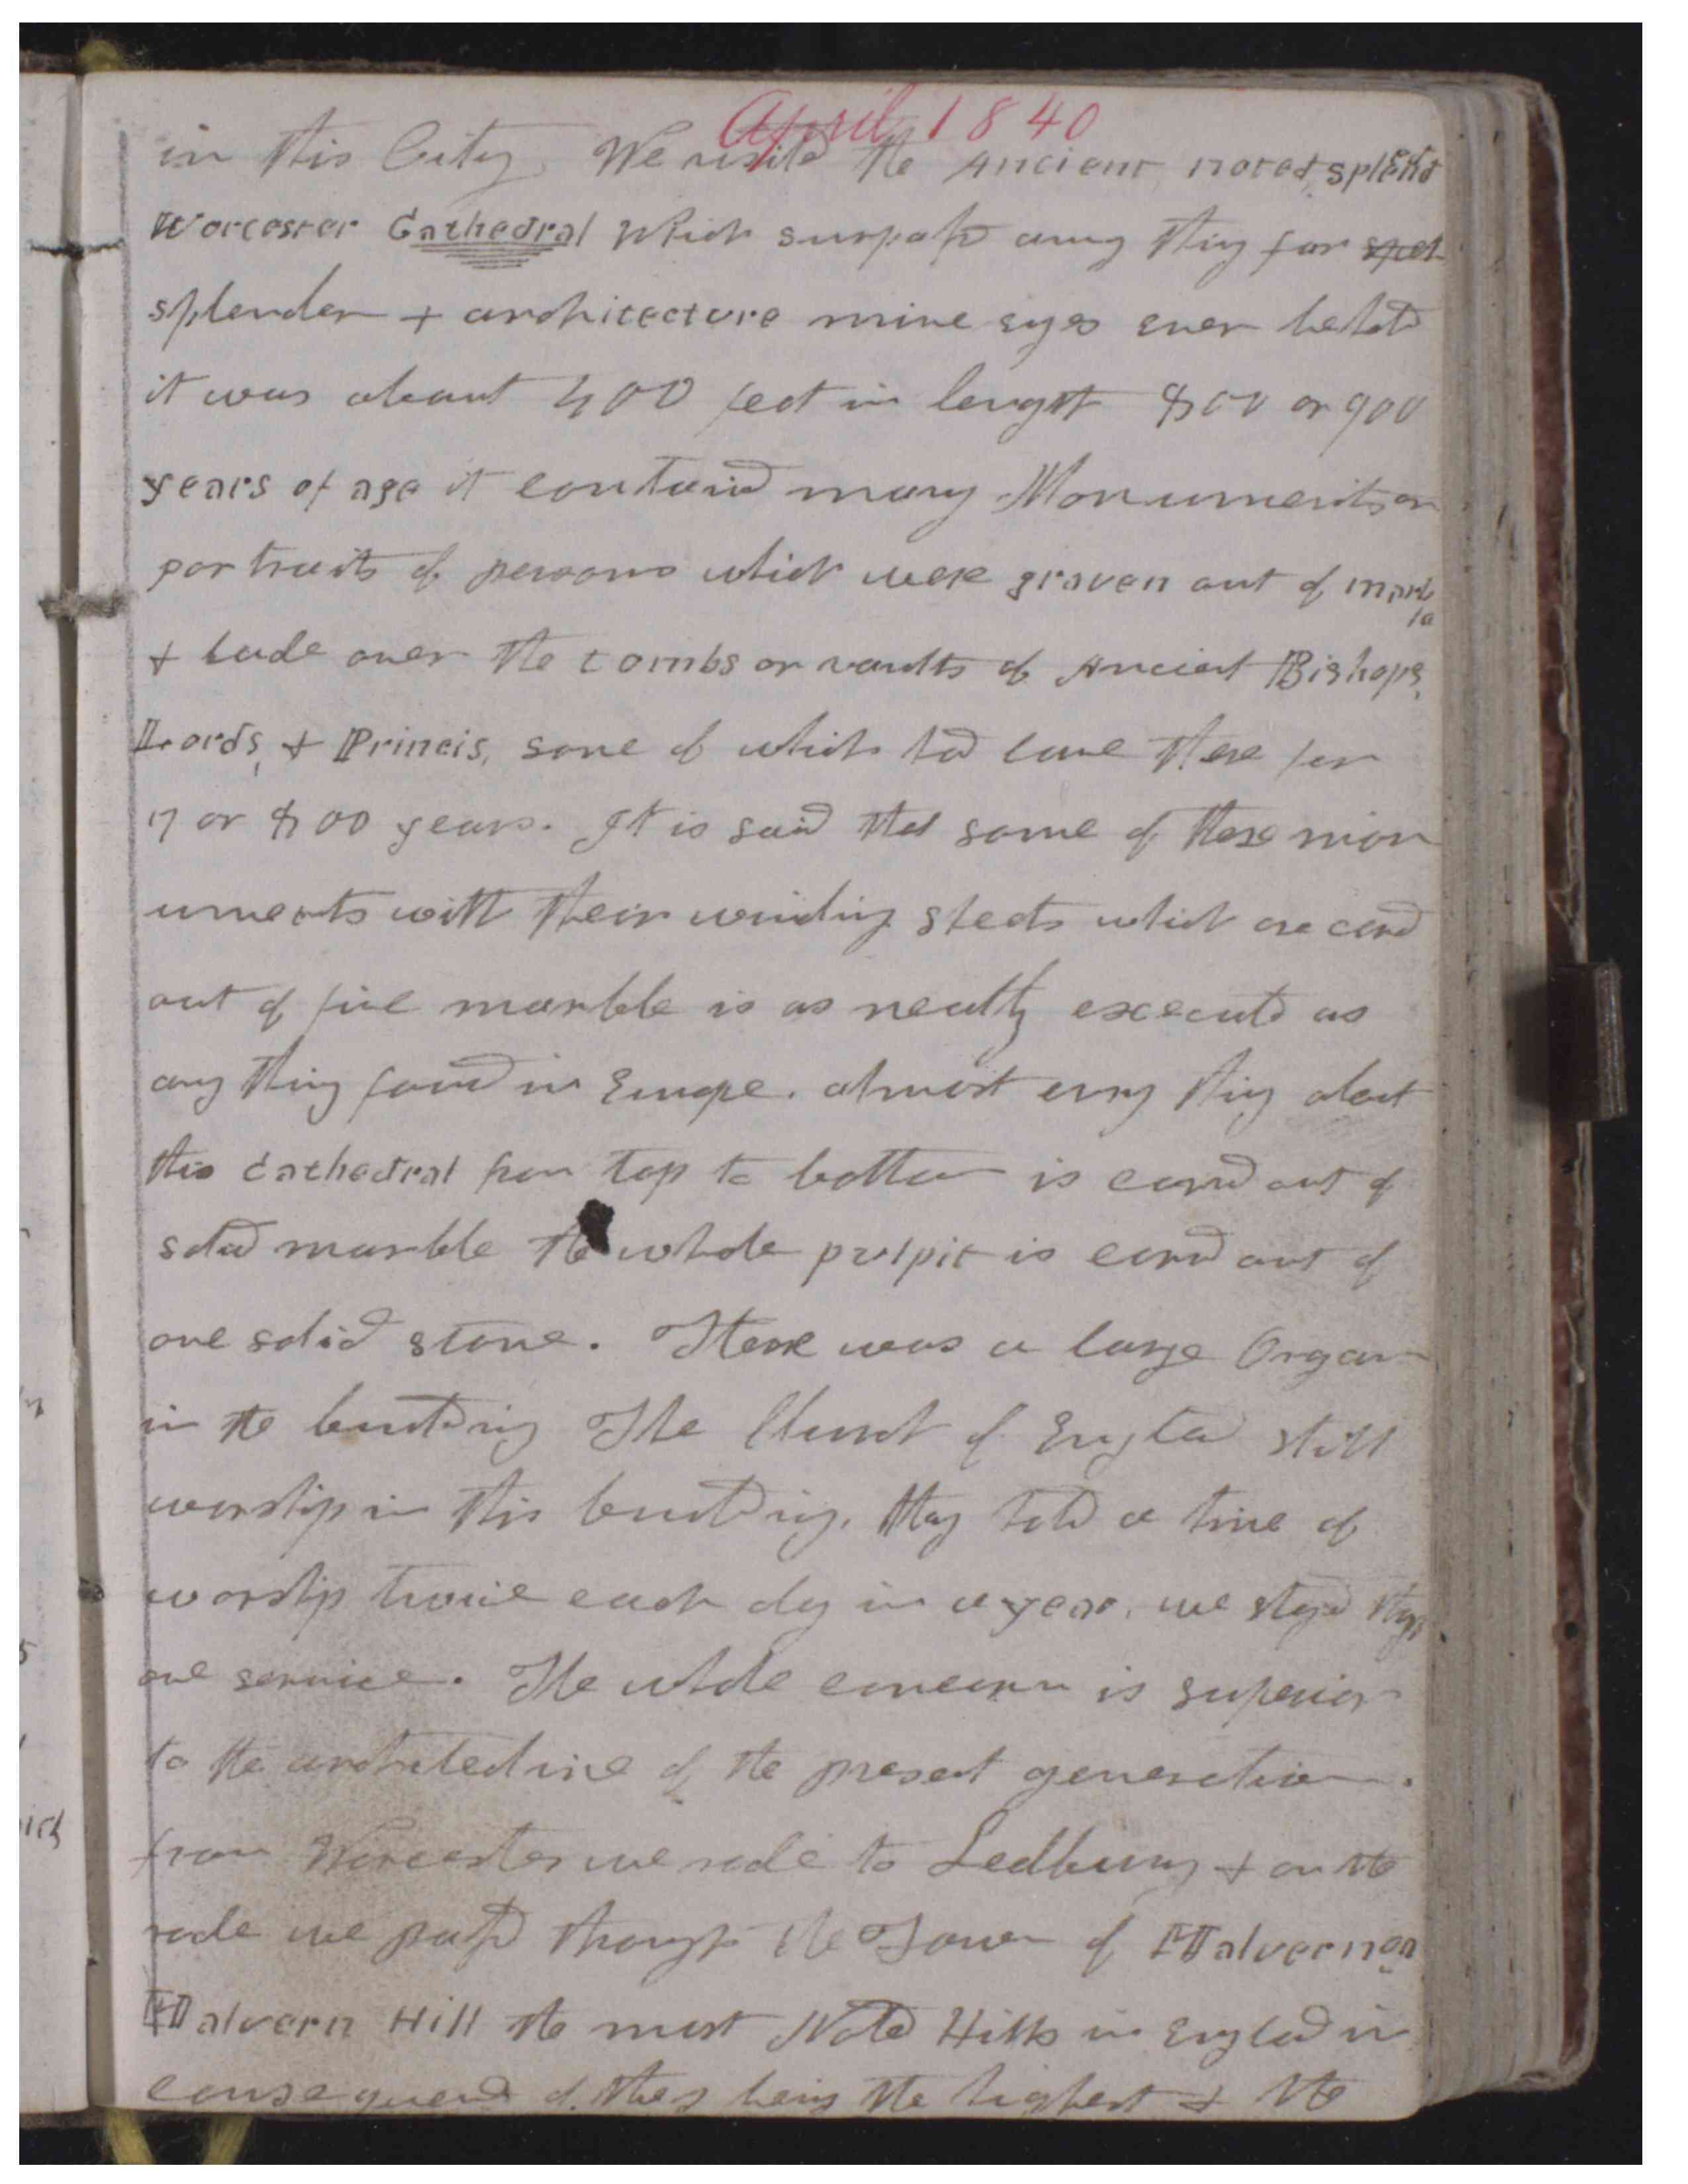 April 1840
in this City. We visited the Ancient, noted, splend
Worcester Cathedral which surpass any thing for spel
splender + architecture mine eyes ever behold
it was about 400 feet in length 800 or 900
years of age it contained many Monuments or
portraits of persons which were graven out of marb
le
+ lade over the tombs or vaults of Ancient Bishops,
Lords, + Princis, some of which had lane there for
7 or 800 years. It is said that some of these mon
uments with their winding sheets which are carvd
out of fine marble is as neatly executed as
any thing found in Europe. almost evry thing about
this Cathedral from top to bottom is carvd out of
solid marble the whole pulpit is carvd out of
one solid stone. There was a large Organ
in the building The Church of England still
worship in this building. they hold a time of
worship twice each day in a year. we stayd through
one service. The whole concern is superior
to the architecture of the present generation.
from Worcester we rode to Ledbury + on the
rode we passd through the Town of Malvern on
Malvern Hill the most Noted Hills in England in
consequence of they being the highest + the
ich